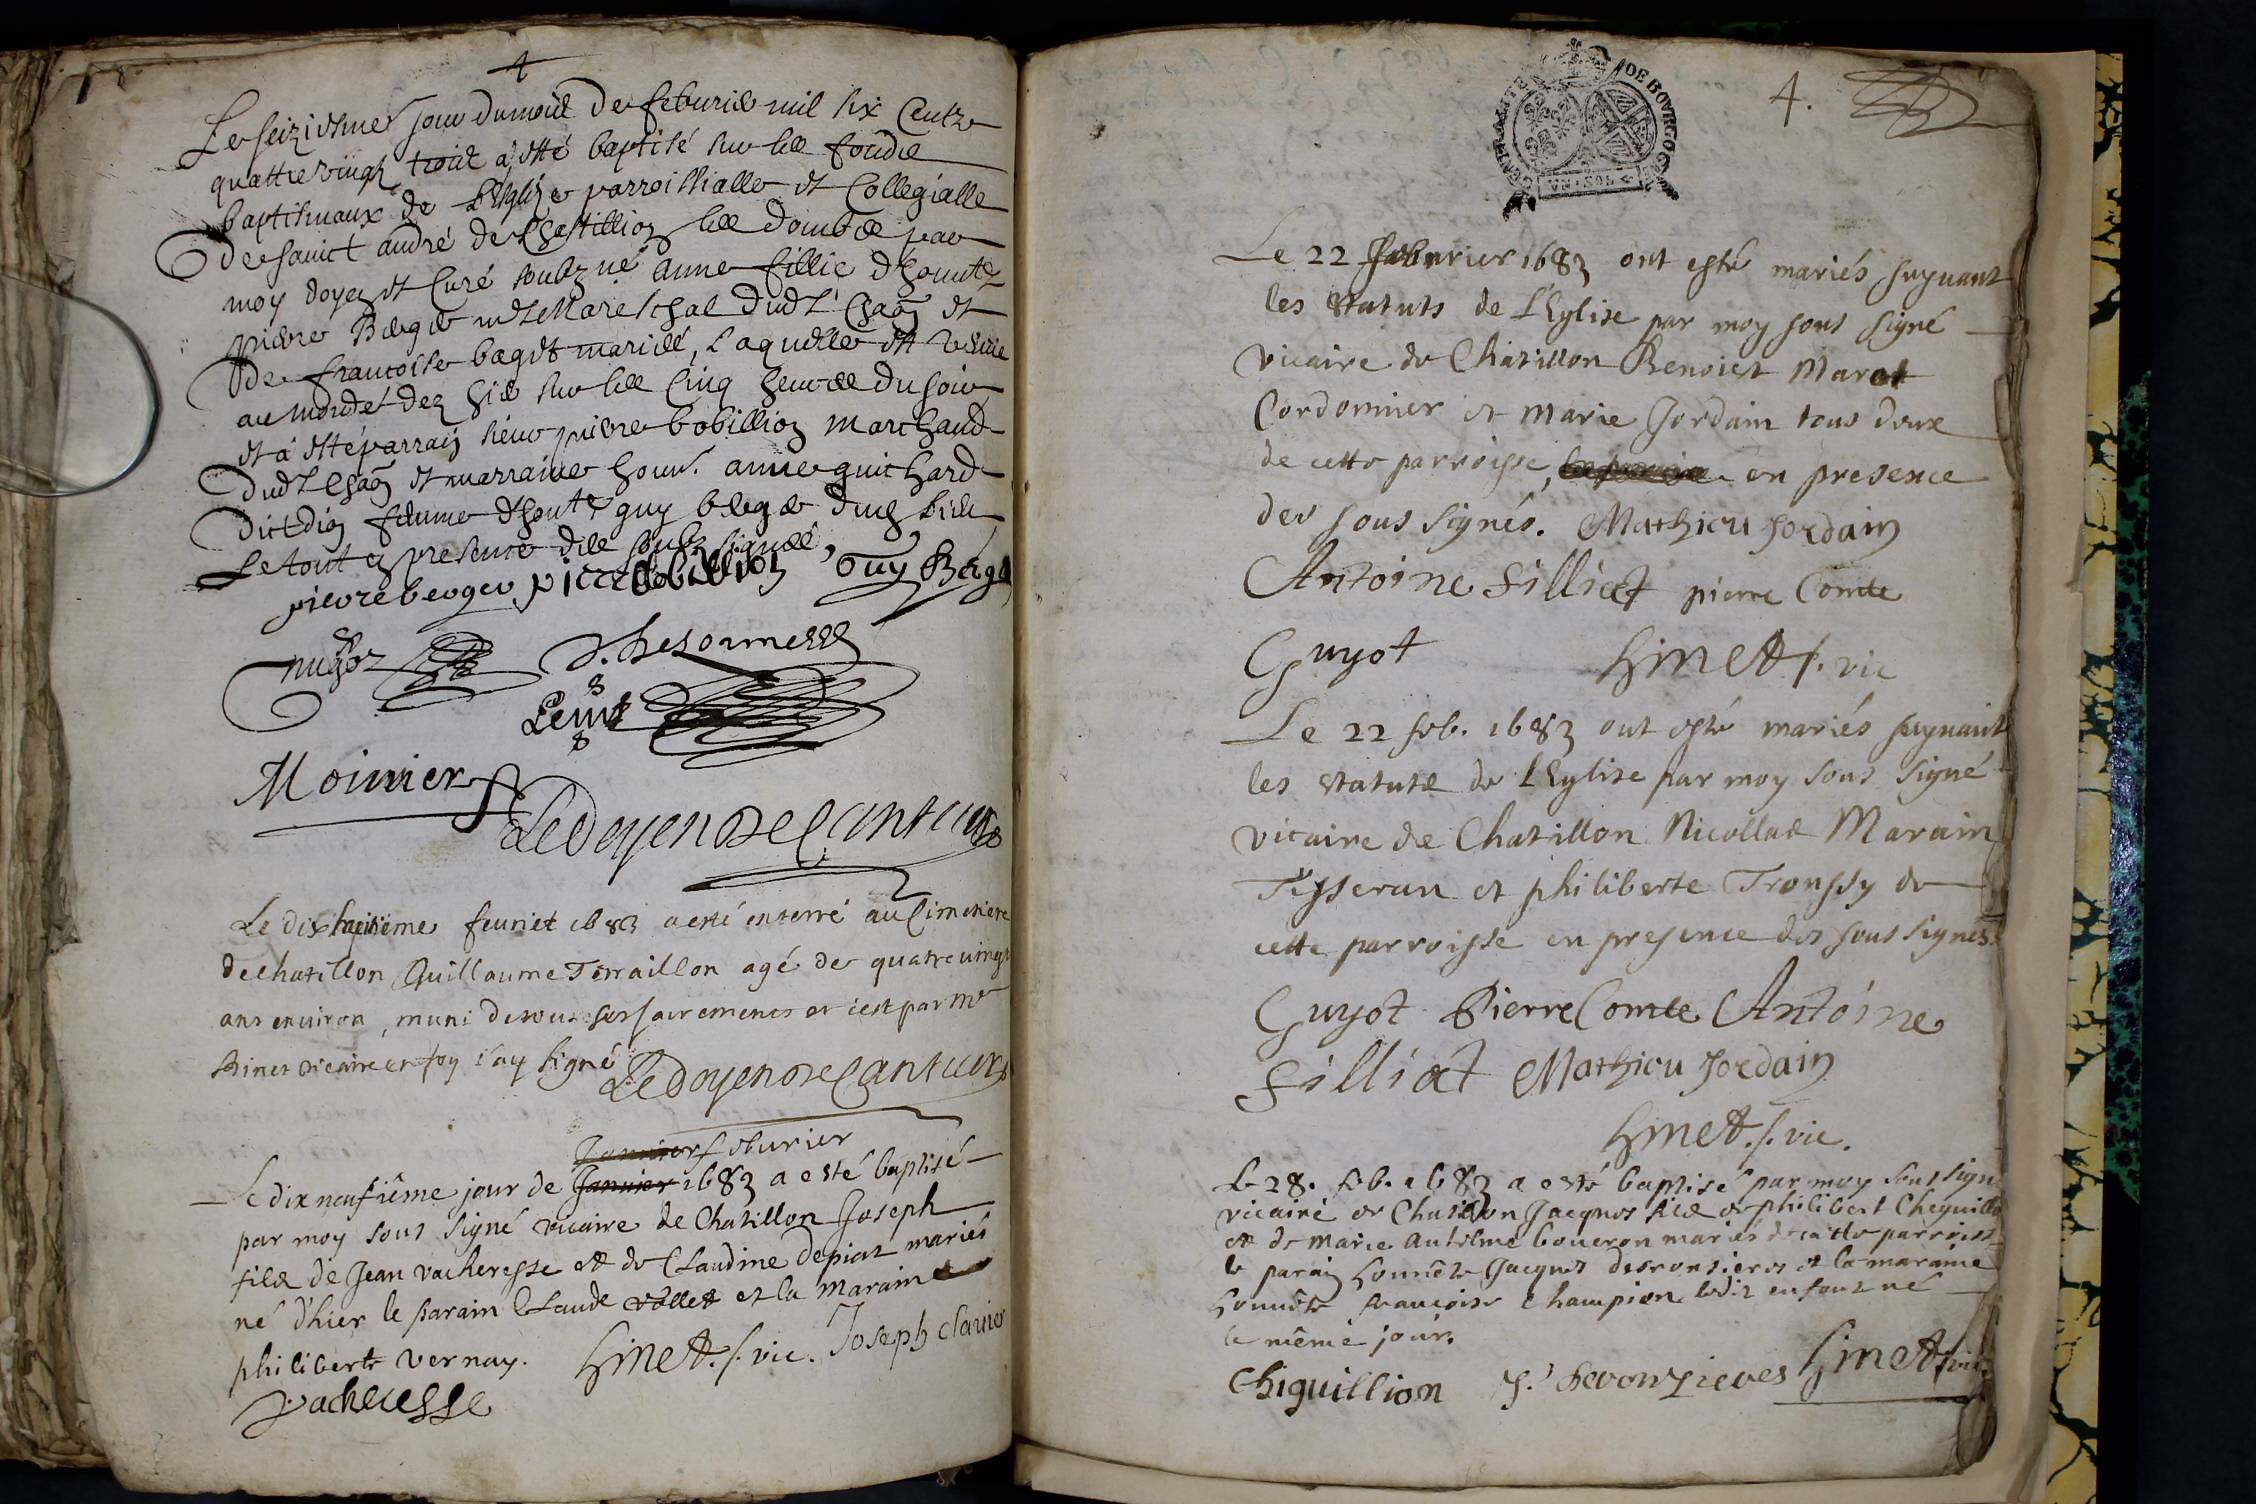 4
Le seiziesme jour du mois de feburier mil six Centz
quattre vingt trois a esté baptisé sur les fondz
baptismaux de L'Eglize parroissialle et Collegialle
de sainct andré de Chastillion les dombes par
moy doyen et Curé soubzné Anne fillie d'honnte
pierre Berger me Mareschal dudt Chaon et
de francoise berger mariés, Laquelle est venue
au monde dez hier sur les Cinq heures du soir
et a esté parrain sieur pierre bobillion marchand
dudt Chaon et marraine honn. anne guichard
dict dion femme d'honte guy berger dud lieu
Le tout en presence des soubz signés,
pierre berger pierre bobillion Guy Berger
D. desormes
Moinier
Le doyen De Canteur
Le dixhuitieme feurier 1683 a esté enterré au Cimetiere
de chatillon Guillaume Terraillon agé de quatre vingt
ans environ, muni de tous ses sacrements et c'est par Mr
hinet vicaire en foy j'ay signé
Le doyen De Canteur
Janvier feburier
Le dix neufiême jour de Janvier 1683 a esté baptisé
par moy sous signé vicaire de Chatillon Joseph
fils de Jean vacheresse et de Claudine depiat mariés
né d'hier le parain Claude vollet et la Maraine
philiberte vernay. hinet p. vic. Joseph clavier
vacheresse
GENERALITE DE BOVRGOGNE
VN SOL
4.
Le 22 feburier 1683 ont esté mariés suyuant
les statuts de L'Eglise par moy sous signé
vicaire de Chatillon Benoist Marat
Cordonnier et Marie Jordain tous deux
de cette parroisse, en presence
des sous signés. Mathieu Jordain
Antoine Silliat pierre Comte
Guyot hinet p. vic
Le 22 feb. 1683 ont esté mariés suyuant
les statuts de L'Eglise par moy sous signé
vicaire de Chatillon Nicollas Marain
Tisseran et philiberte Troussy de
cette parroisse en presence des sous signés.
Guyot Pierre Comte Antoine
Silliat Mathieu Jordain
hinet p. vic.
Le 28. feb. 1683 a esté baptisé par moy sous signé
vicaire de Chatillon Jacques fils de philibert Cheguillion
et de Marie Anthelme boueron mariés de cette parroisse
le parain honnête Jacques desronsieres et la maraine
honnête francoise Champion ledit enfant né
le même jour.
Chiguillion J. Deronzieres hinet p. vic